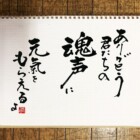 ありがとう
君たちの
魂声に
元気を
もらえるよ